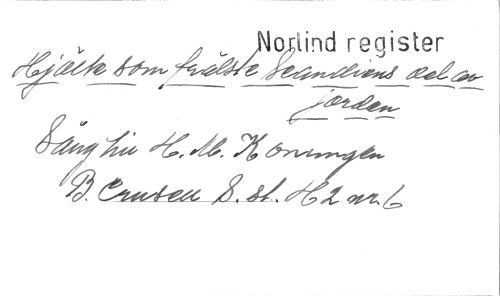 Norlind register
Hjälte som frälste Scandiens del av
jorden
Sång till H. M. Konungen
B. Crusell S. st. H2 nr. 6